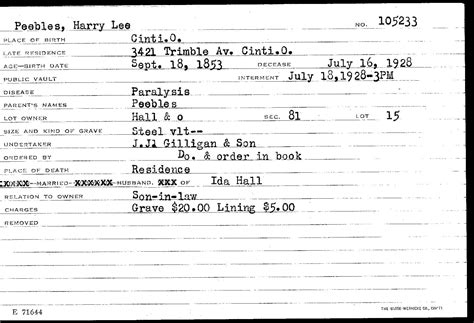 Peebles, Harry Lee NO. 105233
PLACE OF BIRTH Cinti.O.
LATE RESIDENCE 3421 Trimble Av. Cinti.O.
AGE—BIRTH DATE Sept. 18, 1853 DECEASE July 16, 1928
PUBLIC VAULT INTERMENT July 18,1928-3PM
DISEASE Paralysis
PARENT'S NAMES Peebles
LOT OWNER Hall & o SEC. 81 LOT 15
SIZE AND KIND OF GRAVE Steel vlt--
UNDERTAKER J.J1 Gilligan & Son
ORDERED BY Do. & order in book
PLACE OF DEATH Residence
MARRIED HUSBAND, XXX OF Ida Hall
RELATION TO OWNER Son-in-law
CHARGES Grave $20.00 Lining $5.00
REMOVED
E 71644 CO., CIN'TI